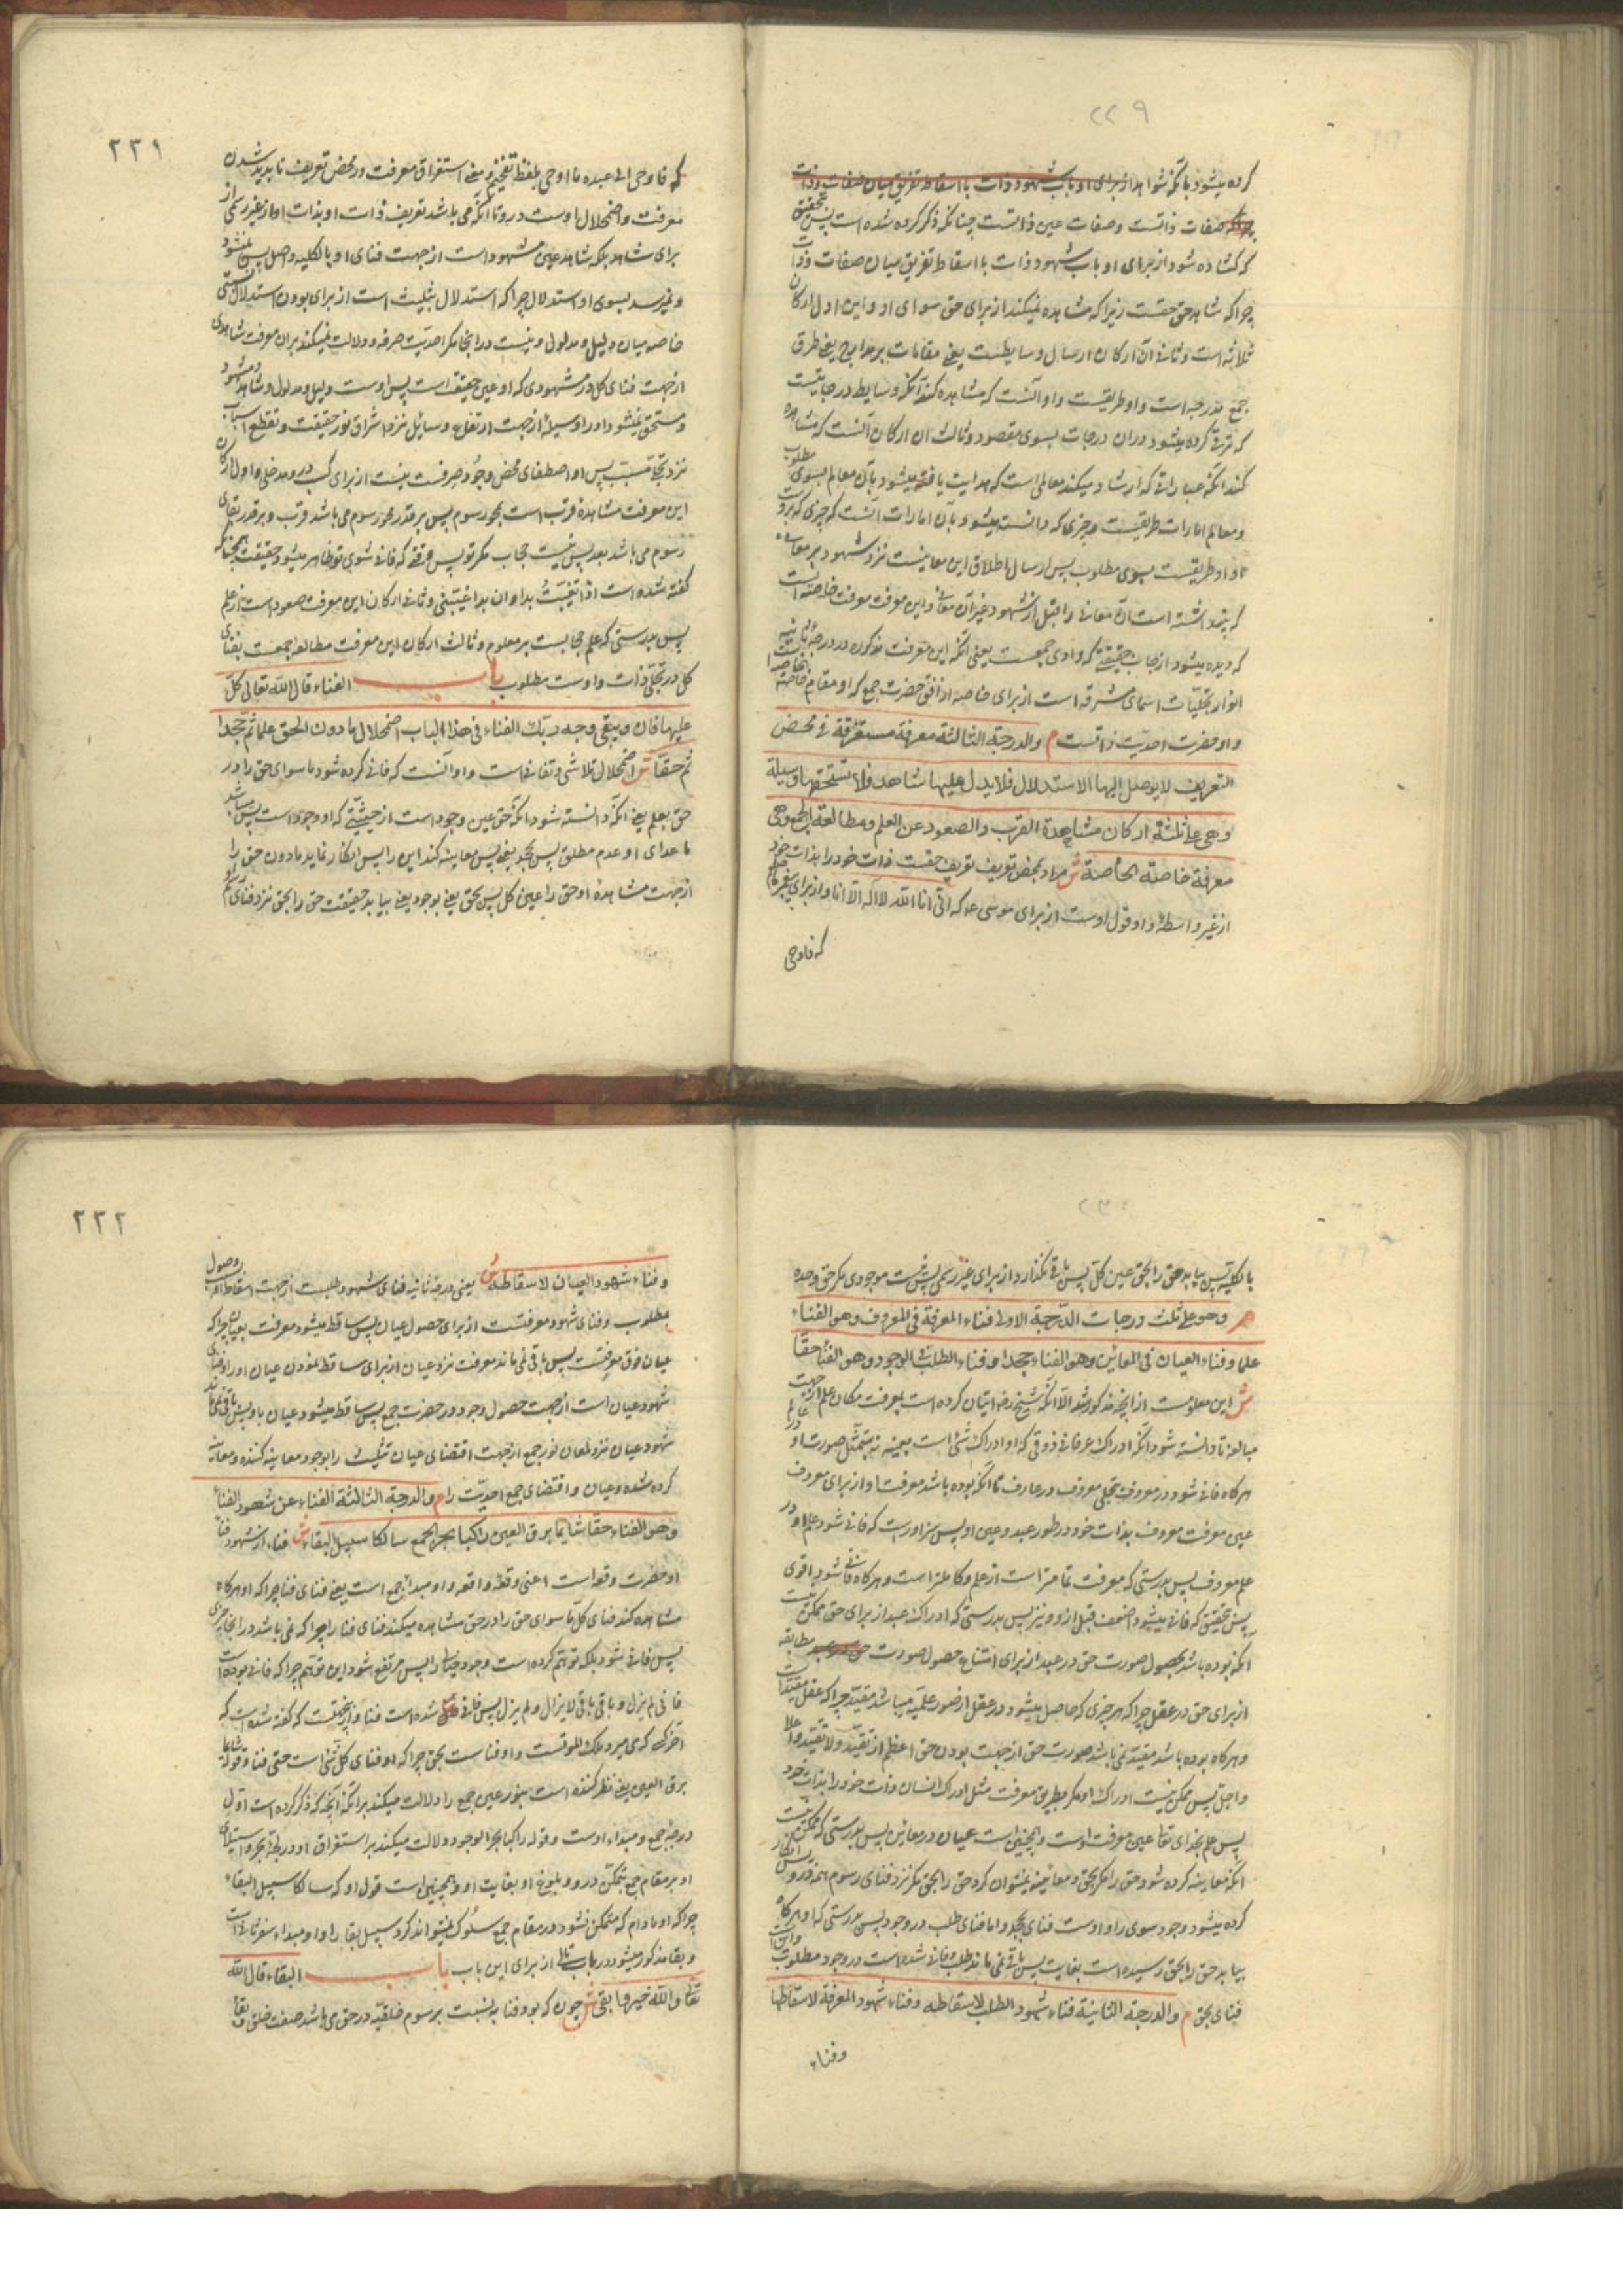 ۲۲۹
کرده میشود بآنکه شواهد از برای او باب شهود ذات با اسقاط تفریق میان صفات و ذات
صفات ذاتست و صفات عین ذاتست چنانکه ذکر کرده شده است پس تحقیق
که کشاده شود از برای او باب شهود ذات با اسقاط تفریق میان صفات و ذات
چراکه شاهد حق حقست زیراکه مشاهده نمیکند از برای حق سوای او و این اول ارکان
ثلاثه است و ثانی آن ارکان ارسال وسایطست یعنی مقامات بر مدارج یعنی طرق
جمع مدرجه است و او طریقست و او آنست که مشاهده کند آنکه وسایط درجاتیست
که ترقی کرده میشود در آن درجات بسوی مقصود و ثالث آن ارکان آنست که مشاهده
کند آنکه عباراتی که ارشاد میکند معالمی است که هدایت یافته میشود بآن معالم بسوی مطلوب
و معالم امارات طریقست و چیزی که دانسته میشود بآن امارات آنست که چیزی که بروست
او طریقست بسوی مطلوب پس ارسال اطلاق این معانیست نزد شهود بر معانی
که پنداشته است آن معانی را قبل از شهود غیر آن معانی و این معرفت معرفت خاصه است
که دیده میشود از جانب حقیقة که وادی جمعست یعنی آنکه این معرفت مذکور در درجه ثانیه
انوار تجلیات اسمای مشرقه است از برای خاصه از افق حضرت جمع که او مقام خاصة الخاصه است
و او حضرت احدیت ذاتست م والدرجة الثالثة معرفة مستغرقة فی محض
التعریف لا یوصل الیها الاستدلال فلا یدل علیها شاهد فلا تستحقها وسیلة
وهی علی ثلثة ارکان مشاهدة القرب والصعود عن العلم ومطالعة الجمع وهی
معرفة خاصة الخاصة ش مراد بمحض تعریف تعریف حقست ذات خود را بذات خود
از غیر واسطه و او قول اوست از برای موسی ع که انی انا الله لا اله الا انا و از برای پیغمبر
که فاوحی
۲۳۱
که فاوحی الی عبده ما اوحی بلفظ تفخیم و معنی استغراق معرفت در محض تعریف ناپدید شدن
معرفت و اضمحلال اوست درو تا آنکه می باشد تعریف ذات او بذات او از غیر رسمی از
برای شاهد بلکه شاهد عین مشهود است از جهت فنای او بالکلیه و اصل پس نمیشود
و نمیرسد بسوی او استدلال چراکه استدلال بتثلیث است از برای بودن استدلال نسبتی
خاصه میان دلیل و مدلول و نیست در اینجا مگر احدیت صرفه و دلالت نمیکند بر آن معرفت شاهدی
از جهت فنای کل در مشهودی که او عین حقیقت است پس اوست دلیل و مدلول و شاهد و مشهود
و مستحق نمیشود او را وسیله از جهت ارتفاع وسایل نزد اشراق نور حقیقت و تقطع اسباب
نزد تجلیست پس او اصطفای محض وجود صرفست نیست از برای کسب در و مدخلی و اول ارکان
این معرفت مشاهدهٔ قرب است بمحو رسوم پس بر قدر محو رسوم می باشد قرب و بر قدر بقای
رسوم می باشد بعد پس نیست حجاب مگر تو پس وقتی که فانی شوی تو ظاهر میشود حقیقت همچنانکه
گفته شده است اذا تغیبت بدا وان بدا غیبنی و ثانی ارکان این معرفت صعود است از علم
پس بدرستی که علم حجابست بر معلوم و ثالث ارکان این معرفت مطالعه جمعست بفنای
کل در تجلی ذات و اوست مطلوب باب الفناء قال الله تعالی کل
علیها فان ویبقی وجه ربک الفناء فی هذا الباب اضمحلال ما دون الحق علما ثم جحدا
ثم حقا ش اضمحلال تلاشی و تفانیست و او آنست که فانی کرده شود ما سوای حق را در
حق بعلم یعنی آنکه دانسته شود آنکه حق عین وجود است از حیثیتی که او وجود است پس میباشد
ما عدای او عدم مطلق پس بجحد یعنی پس معاینه کند این را پس انکار نماید ما دون حق را
از جهت مشاهدهٔ او حق را عین کل پس بحق یعنی بوجود یعنی بیابد حقیقت حق را بحق نزد فنای رسم او
۲۳۰
بالکلیه پس بیابد حق را بحق عین کل پس باقی نگذارد از برای غیر رسمی پس نیست موجودی مگر حق وحده
م وهو علی ثلث درجات الدرجة الاولی فناء المعرفة فی المعروف وهو الفناء
علما وفناء العیان فی المعاین وهو الفناء جحدا وفناء الطلب فی الوجود وهو الفناء حقا
ش این معلومست از آنچه مذکور شد الا آنکه شیخ رضه اتیان کرده است بمعرفت مکان علم از جهت
مبالغه تا دانسته شود آنکه ادراک عرفانی ذوقی که او ادراک شیٔ است بعینه نه بتمثل صورت او در عالم
هرکاه فانی شود در معروف بتجلی معروف در عارف تا آنکه بوده باشد معرفت او از برای معروف
عین معرفت معروف بذات خود در طور عبد و عین او پس سزاورست که فانی شود علم او در
علم معروف پس بدرستی که معرفت تمامتر است از علم و کاملتر است و هرکاه فانی شود اقوی
پس تحقیق که فانی میشود اضعف قبل از و و نیز پس بدرستی که ادراک عبد از برای حق ممکن نیست
آنکه بوده باشد بحصول صورت حق در عبد از برای امتناع حصول صورت مطابقه
از برای حق در عقل چراکه هر چیزی که حاصل میشود در عقل از صور علمیه میباشد مقید چراکه عقل مقید است
و هرکاه بوده باشد مقید نمی باشد صورت حق از جهت بودن حق اعظم از تقید و لا تقید و اعلا
و اجل پس ممکن نیست ادراک او مگر بطریق معرفت مثل ادراک انسان ذات خود را بذات خود
پس علم بخدای تعا عین معرفت اوست و همچنین است عیان در معاین پس بدرستی که ممکن نیست
آنکه معاینه کرده شود حق را مگر بحق و معاینه نمیتوان کرد حق را بحق مگر نزد فنای رسوم همه درو پس انکار
کرده میشود وجود سوی را و اوست فنای بجحد و اما فنای طلب در وجود پس بدرستی که او هرکاه
بیابد حق را بحق رسیده است بغایت پس باقی نمی ماند طلب و فانی شده است در وجود مطلوب و اینست
فنای بحق م والدرجة الثانیة فناء شهود الطلب لاسقاطه وفناء شهود المعرفة لاسقاطها
وفناء
۲۳۲
وفناء شهود العیان لاسقاطه ش یعنی درجهٔ ثانیه فنای شهود طلبست از جهت اسقاط او بوصول
بمطلوب و فنای شهود معرفتست از برای حصول عیان پس ساقط میشود معرفت بعیان چراکه
عیان فوق معرفتست پس باقی نمی ماند معرفت نزد عیان از برای ساقط نمودن عیان او را و فنای
شهود عیان است از جهت حصول وجود در حضرت جمع پس ساقط میشود عیان باو پس باقی نمی ماند
شهود عیان نزد لمعان نور جمع از جهت اقتضای عیان تثلیث را بوجود معاینه کننده و معاینه
کرده شده و عیان و اقتضای جمع احدیت را م والدرجة الثالثة الفناء عن شهود الفناء
وهو الفناء حقا شایما برق العین راکبا بحر الجمع سالکا سبیل البقاء ش فناء از شهود فنا
او حضرت وقعه است اعنی وقعهٔ واقعه و او مبدأ جمع است یعنی فنای فنا چراکه او هرکاه
مشاهده کند فنای کل ما سوای حق را در حق مشاهده میکند فنای فنا را چراکه نمی باشد در آنجا چیزی
پس فانی شود بلکه توهم کرده است وجود خیال را پس مرتفع شود این توهم چراکه فانی بوده است
فانی لم یزل و باقی باقی لا یزال و لم یزل پس فانی شده است فنا و ازینجهتست که گفته شده است که
آخر کسی که می میرد ملک الموتست و او فناست بحق چراکه او فنای کل شیٔ است حتی فنا و قوله شایما
برق العین یعنی نظر کننده است بنور عین جمع را دلالت میکند بر آنکه آنچه که ذکر کرده است اول
درجه جمع و مبداء اوست و قوله راکبا بحر الوجود دلالت میکند بر استغراق او در لجهٔ بحر و استیلای
او بر مقام جمع بتمکن درو و بلوغ او بغایت او و همچنین است قول او که سالکا سبیل البقاء
چراکه او مادام که متمکن نشود در مقام جمع سلوک نمیتواند کرد سبیل بقا را و او مبداء سفر ثانی است
و بقا مذکور میشود در باب تالی از برای این باب باب البقاء قال الله
تعالی والله خیر وابقی ش چون که بود فنا به نسبت برسوم خلقیه در حق می باشد صفت خلق و بقا